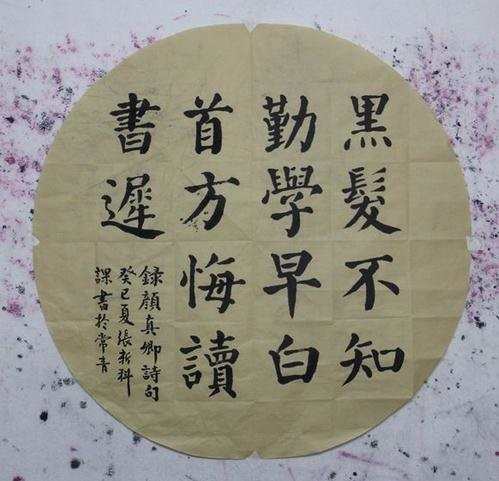 黒髮不知
勤學早白
首方悔讀
書遲
録顔真卿詩句
癸巳夏張新科
課書於常青